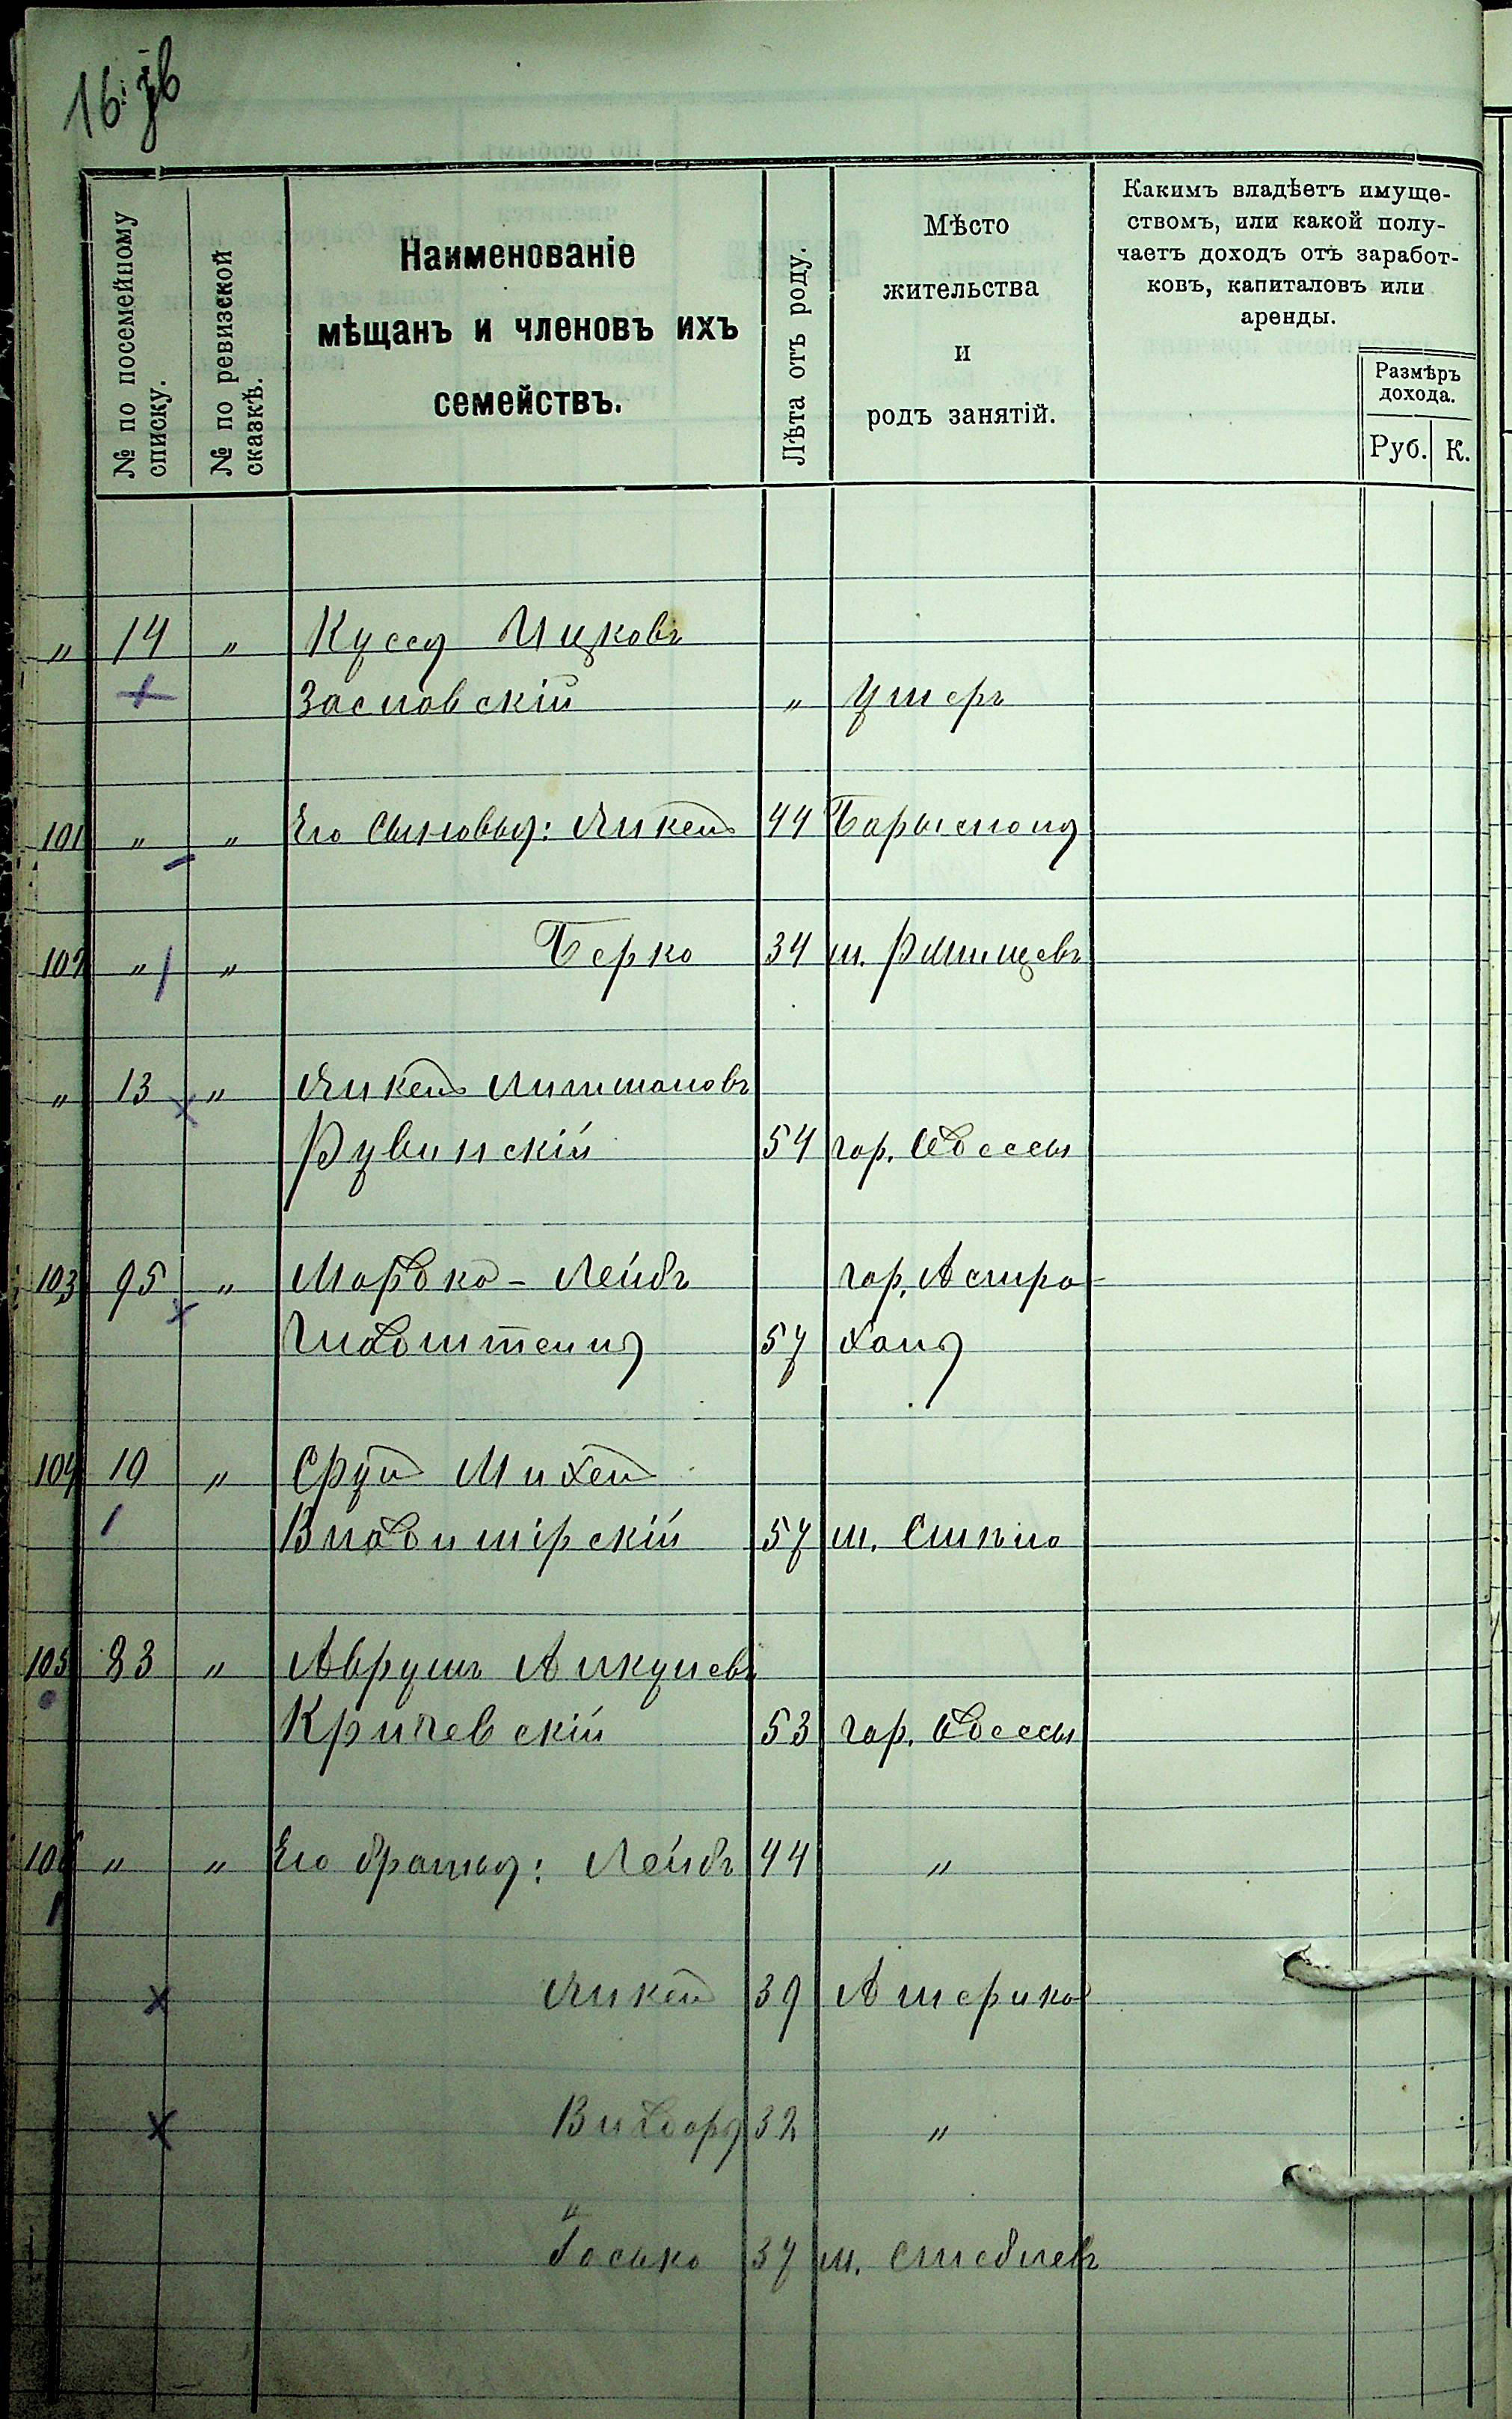 16. зв
№ по посемейному списку.
№ по ревизской сказкѣ.
Наименованіе
мѣщанъ и членовъ ихъ
семействъ.
Лѣта отъ роду.
Мѣсто
жительства
и
родъ занятій.
Какимъ владѣетъ имуще-
ствомъ, или какой полу-
чаетъ доходъ отъ заработ-
ковъ, капиталовъ или
аренды.
Размѣръ
дохода.
Руб. К.
" 14 " Ицковъ
Заславскій " умеръ
101 " " Его сыновья: Янкель 44
102 " " Берко 34 м. Ржищевъ
" 13 " Янкель Липмановъ
Рувинскій 54 гор. Одессы
103 95 " Мордко-Лейбъ гор. Астра-
57 хань
104 10 " Сруль Михель
Владимірскій 57 м. Смѣла
105 83 " Аврумъ
Кричевскій 53 гор. Одессы
106 " " Его братья: Лейбъ 44 "
Янкель 39 Америка
32 "
Іосько 37 м. Стеблевъ